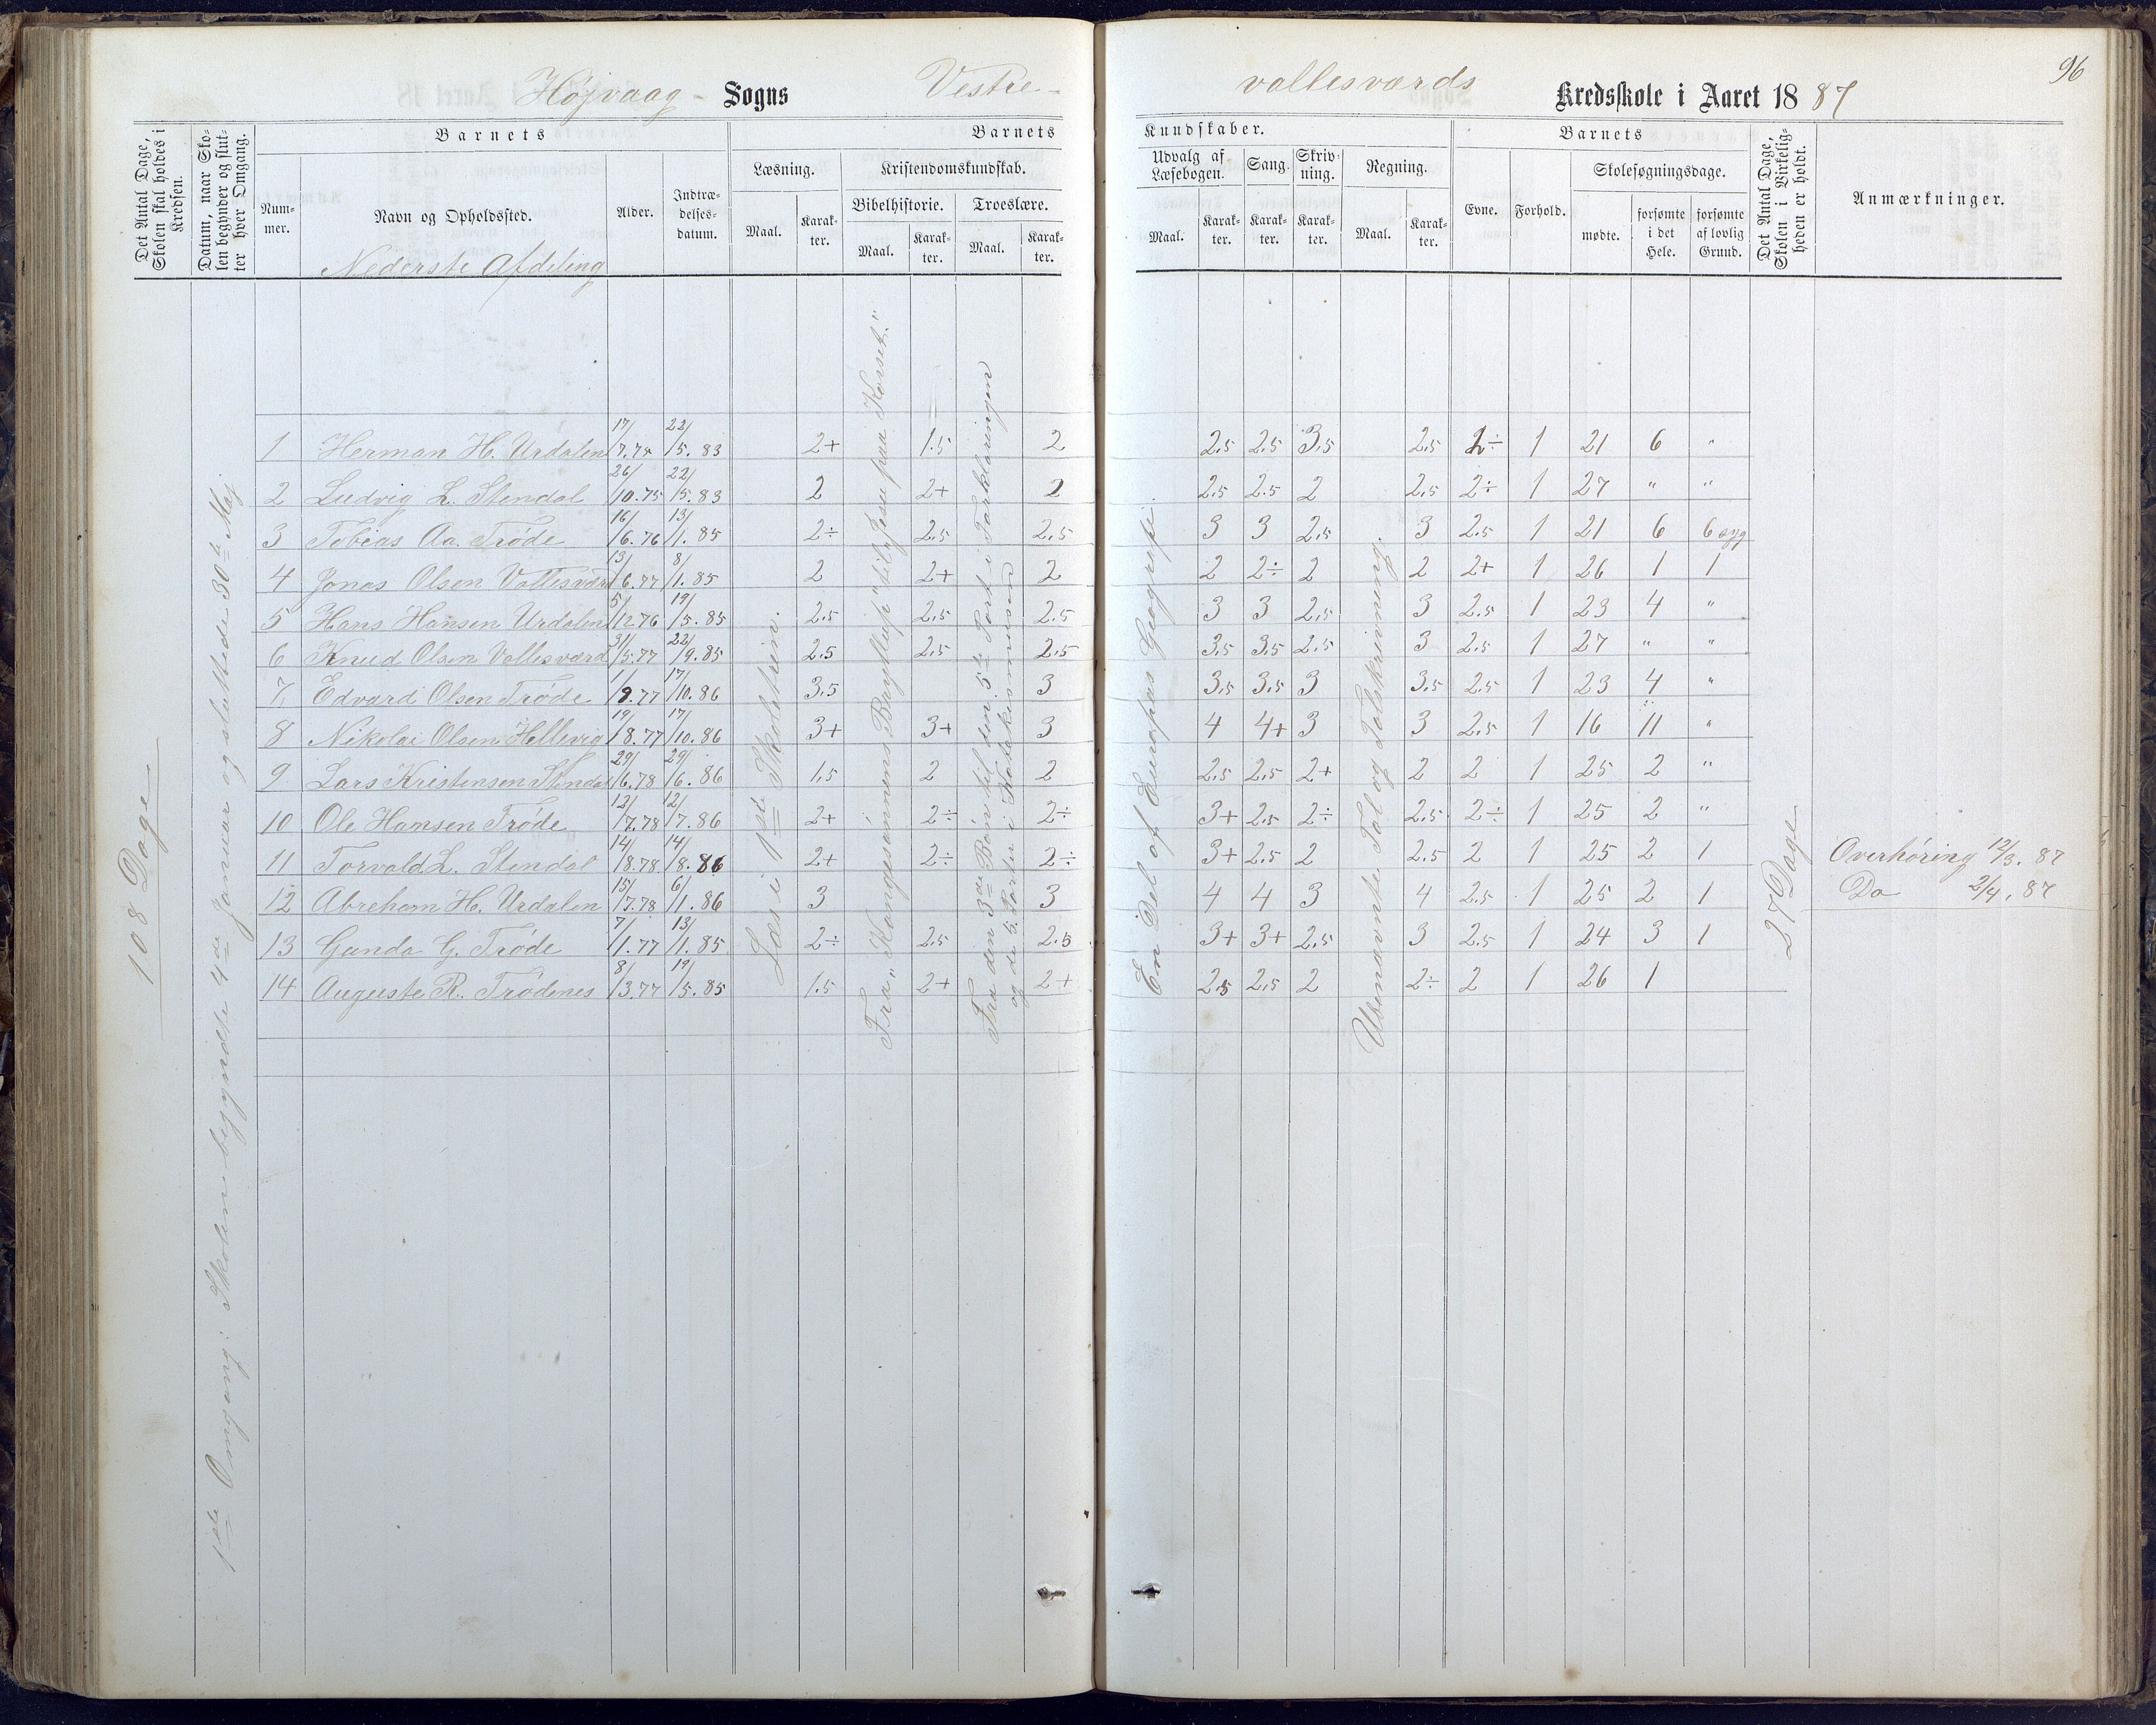 96
Højvaag - Sogns Vestre - vallesværds Kredsskole i Aaret 1887
Det Antal Dage, Skolen skal holdes i Kredsen.
Datum, naar Skolen begynder og slutter hver Omgang.
Barnets
Nummer.
Navn og Opholdssted.
Alder.
Indtrædelsesdatum.
Barnets Kundskaber.
Læsning.
Maal.
Karakter.
Kristendomskundskab.
Bibelhistorie.
Maal.
Karakter.
Troeslære.
Maal.
Karakter.
Udvalg af Læsebogen.
Maal.
Karakter.
Sang.
Karakter.
Skrivning.
Karakter.
Regning.
Maal.
Karakter.
Barnets
Evne.
Forhold.
Skolesøgningsdage.
mødte.
forsømte i det Hele.
forsømte af lovlig Grund.
Det Antal Dage, Skolen i Virkeligheden er holdt.
Anmærkninger.
Nederste Afdeling
108 Dage
1ste Omgang: Skolen begyndte 4de Januar og sluttede 30te Maj
Læs i 1ste Skoletrin.
Fra „Kongesønnens Bryllup" til „Jesu paa Korset."
Fra den 3die Bøn til den 5te Part i Forklaringen
og de 5 Parter i Katekismusen
En Del af Europas Geografi.
Ubenævnte Tal og Talskrivning.
27 Dage
1 Herman H. Urdalen 17/7.74 22/5.83 2+ 1.5 2 2.5 2.5 3.5 2.5 2÷ 1 21 6 "
2 Ludvig L. Stendal 26/10.75 22/5.83 2 2+ 2 2.5 2.5 2 2.5 2÷ 1 27 " "
3 Tobias Aa. Trøde 16/6.76 13/1.85 2÷ 2.5 2.5 3 3 2.5 3 2.5 1 21 6 6 syg
4 Jonas Olsen Vallesværd 13/6.77 8/1.85 2 2+ 2 2 2÷ 2 2 2+ 1 26 1 1
5 Hans Hansen Urdalen 5/12.76 19/5.85 2.5 2.5 2.5 3 3 2.5 3 2.5 1 23 4 "
6 Knud Olsen Vallesværd 31/5.77 22/9.85 2.5 2.5 2.5 3.5 3.5 2.5 3 2.5 1 27 " "
7 Edvard Olsen Trøde 1/9.77 17/10.86 3.5 3 3.5 3.5 3 3.5 2.5 1 23 4 "
8 Nikolai Olsen Hellevig 19/8.77 17/10.86 3+ 3+ 3 4 4+ 3 3 2.5 1 16 11 "
9 Lars Kristensen Stendal 29/6.78 29/6.86 1.5 2 2 2.5 2.5 2+ 2 2 1 25 2 "
10 Ole Hansen Trøde 12/7.78 12/7.86 2+ 2÷ 2÷ 3+ 2.5 2÷ 2.5 2÷ 1 25 2 "
11 Torvald L. Stendal 14/8.78 14/8.86 2+ 2÷ 2÷ 3+ 2.5 2 2.5 2 1 25 2 1 Overhøring 12/3.87
12 Abreham H. Urdalen 15/7.78 6/1.86 3 3 4 4 3 4 2.5 1 25 2 1 Do 2/4.87
13 Gunda G. Trøde 7/1.77 13/1.85 2÷ 2.5 2.5 3+ 3+ 2.5 3 2.5 1 24 3 1
14 Auguste R. Trødenes 8/3.77 19/5.85 1.5 2+ 2+ 2.5 2.5 2 2÷ 2 1 26 1